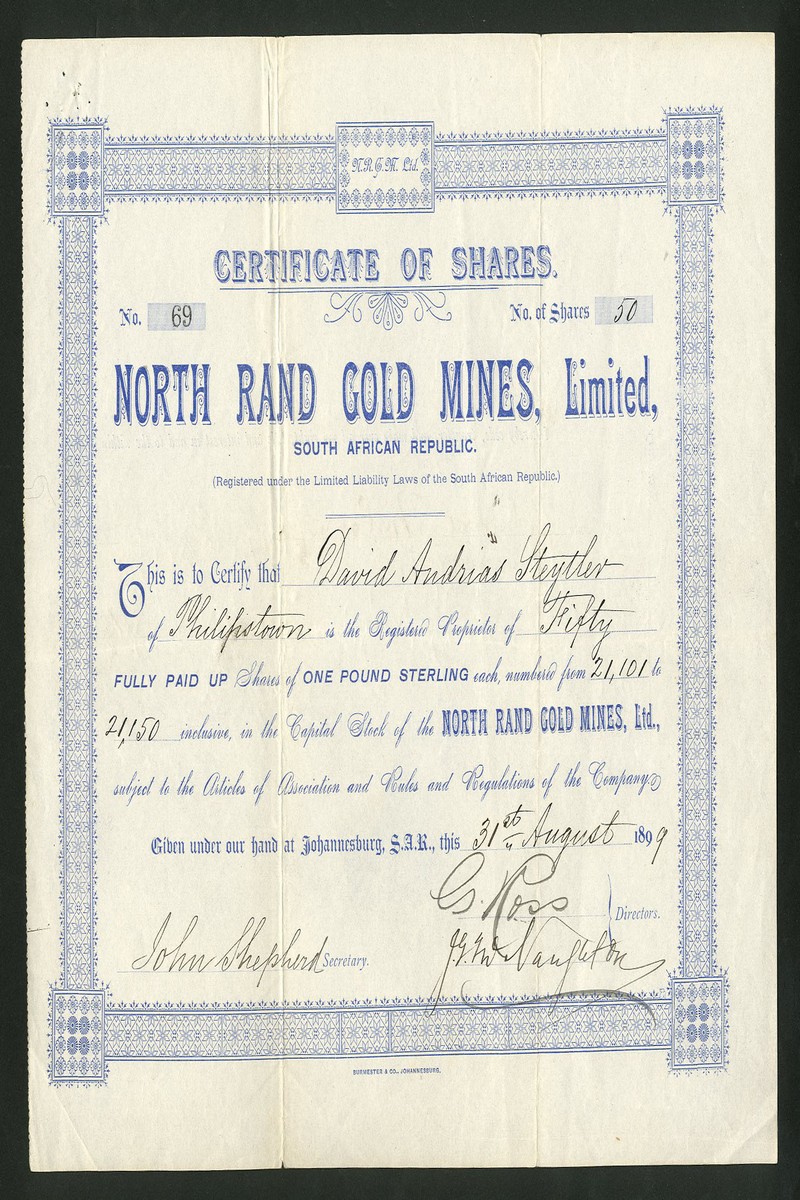 N.R.G.M. Ltd.
CERTIFICATE OF SHARES.
No. 69 No. of Shares 50
NORTH RAND GOLD MINES, Limited,
SOUTH AFRICAN REPUBLIC.
(Registered under the Limited Liability Laws of the South African Republic.)
This is to Certify that David Andrias Steytler
of Philipstown is the Registered Proprietor of Fifty
FULLY PAID UP Shares of ONE POUND STERLING each, numbered from 21,101 to
21,150 inclusive, in the Capital Stock of the NORTH RAND GOLD MINES, Ltd.,
subject to the Articles of Association and Rules and Regulations of the Company.
Given under our hand at Johannesburg, S.A.R., this 31st August 1899
G. Ross
Directors.
John Shepherd Secretary.
J.G. McNaughton
BURMESTER & CO., JOHANNESBURG.